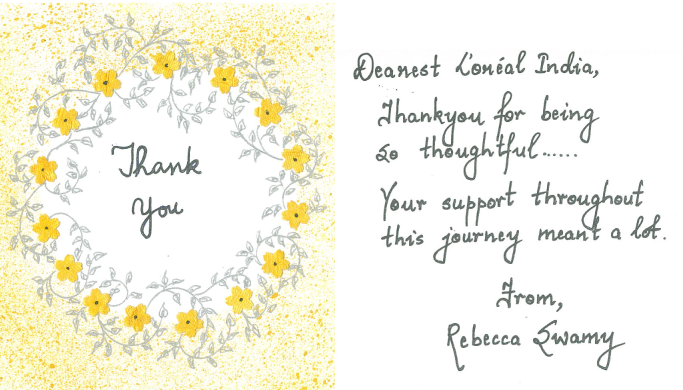 Thank
You
Dearest L'oréal India,
Thankyou for being
so thoughtful......
Your support throughout
this journey meant a lot.
From,
Rebecca Swamy